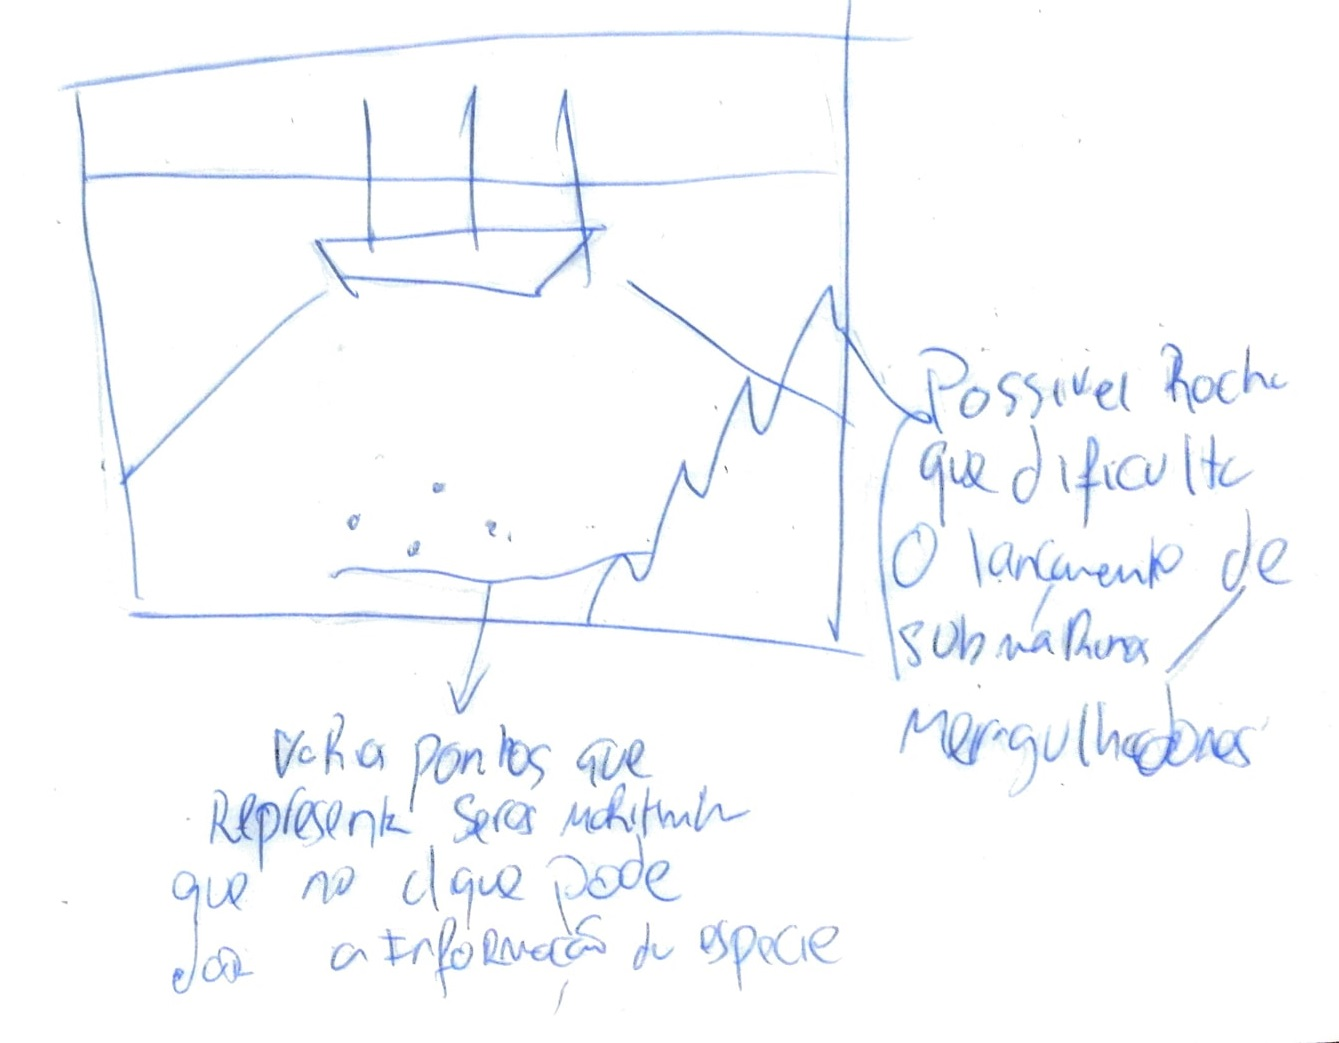 Possivel Rocha
que dificulta
o lançamento de
submarinos
Meragulhadores
Varia pontos que
Representa Seres maritimh
que no clque pode
dar a Informação da especie